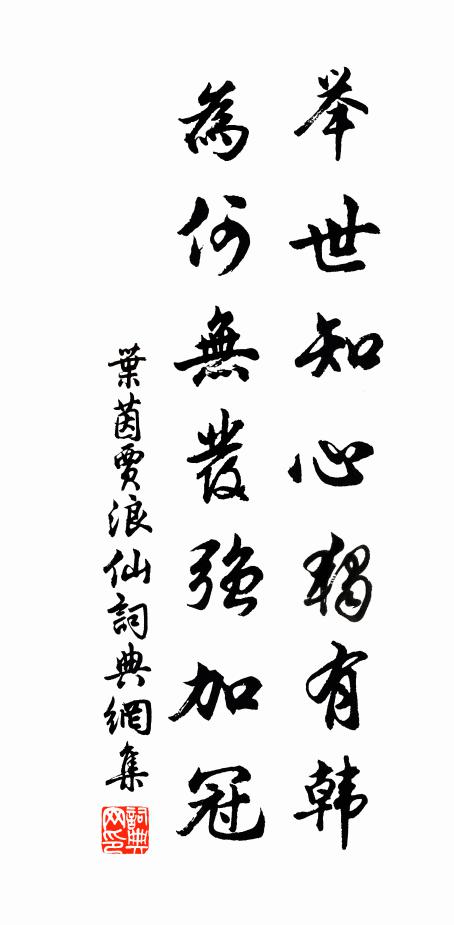 举世知心獨有韩
為何無髮強加冠
葉茵賈浪仙詞典網集
詞典網印